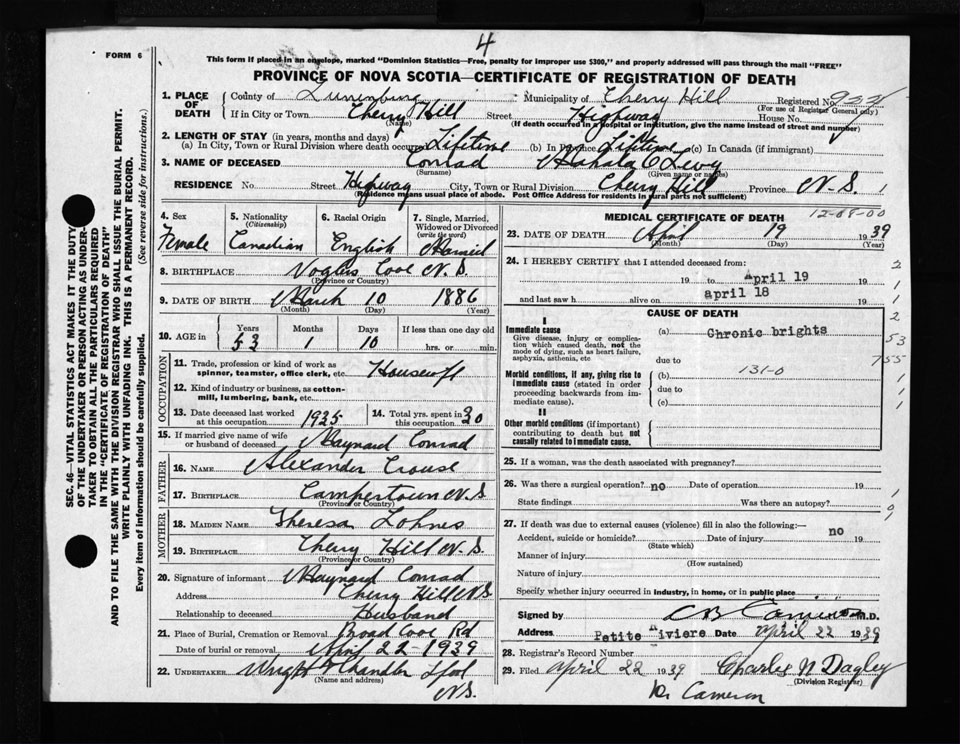 4
FORM 6
This form if placed in an envelope, marked "Dominion Statistics—Free, penalty for improper use $300," and properly addressed will pass through the mail "FREE"
PROVINCE OF NOVA SCOTIA—CERTIFICATE OF REGISTRATION OF DEATH
SEC. 46—VITAL STATISTICS ACT MAKES IT THE DUTY
OF THE UNDERTAKER OR PERSON ACTING AS UNDER-
TAKER TO OBTAIN ALL THE PARTICULARS REQUIRED
IN THE "CERTIFICATE OF REGISTRATION OF DEATH"
AND TO FILE THE SAME WITH THE DIVISION REGISTRAR WHO SHALL ISSUE THE BURIAL PERMIT.
WRITE PLAINLY WITH UNFADING INK. THIS IS A PERMANENT RECORD.
Every item of information should be carefully supplied. (See reverse side for instructions.)
1. PLACE OF DEATH County of Lunenburg Municipality of Cherry Hill Registered No.
(For use of Registrar General only)
If in City or Town Cherry Hill Street Highway House No.
(Name) (If death occurred in a hospital or institution, give the name instead of street and number)
2. LENGTH OF STAY (in years, months and days)
(a) In City, Town or Rural Division where death occurred Lifetime (b) In Province Lifetime (c) In Canada (if immigrant)
3. NAME OF DECEASED Conrad Levy
(Surname) (Given name or names)
RESIDENCE No. Street Highway City, Town or Rural Division Cherry Hill Province N.S.
(Residence means usual place of abode. Post Office Address for residents in rural parts not sufficient)
4. Sex Female
5. Nationality (Citizenship) Canadian
6. Racial Origin English
7. Single, Married, Widowed or Divorced (write the word) Married
8. BIRTHPLACE Voglers Cove N.S.
(Province or Country)
9. DATE OF BIRTH March 10 1886
(Month) (Day) (Year)
10. AGE in Years 53 Months 1 Days 10 If less than one day old hrs. or min.
OCCUPATION
11. Trade, profession or kind of work as spinner, teamster, office clerk, etc. Housewife
12. Kind of industry or business, as cotton-mill, lumbering, bank, etc.
13. Date deceased last worked at this occupation 1935
14. Total yrs. spent in this occupation 30
15. If married give name of wife or husband of deceased Maynard Conrad
FATHER
16. NAME Alexander Crouse
17. BIRTHPLACE Campertown N.S.
(Province or Country)
MOTHER
18. MAIDEN NAME Theresa Lohnes
19. BIRTHPLACE Cherry Hill N.S.
(Province or Country)
20. Signature of informant Maynard Conrad
Address Cherry Hill N.S
Relationship to deceased Husband
21. Place of Burial, Cremation or Removal Broad Cove Rd
Date of burial or removal April 22-1939
22. UNDERTAKER Wright & Chandler Lpool
(Name and address)
N.S.
MEDICAL CERTIFICATE OF DEATH
12-08-00
23. DATE OF DEATH April 19 1939
(Month) (Day) (Year)
24. I HEREBY CERTIFY that I attended deceased from:
19 to April 19 19
and last saw h alive on april 18 19
CAUSE OF DEATH
I
Immediate cause
Give disease, injury or complication which caused death, not the mode of dying, such as heart failure, asphyxia, asthenia, etc
(a) Chronic brights
due to
Morbid conditions, if any, giving rise to immediate cause (stated in order proceeding backwards from immediate cause).
(b) 131-0
due to
(c)
II
Other morbid conditions (if important) contributing to death but not causally related to immediate cause.
2
1
1
2
53
755
1
1
1
25. If a woman, was the death associated with pregnancy?
26. Was there a surgical operation? no Date of operation 19
State findings Was there an autopsy?
27. If death was due to external causes (violence) fill in also the following:—
Accident, suicide or homicide? Date of injury no 19
(State which)
Manner of injury
(How sustained)
Nature of injury
Specify whether injury occurred in industry, in home, or in public place
Signed by M.D.
Address Petite Riviere Date April 22 1939
28. Registrar's Record Number
29. Filed April 22 1939 Charles N Dagley
(Division Registrar)
Dr Cameron